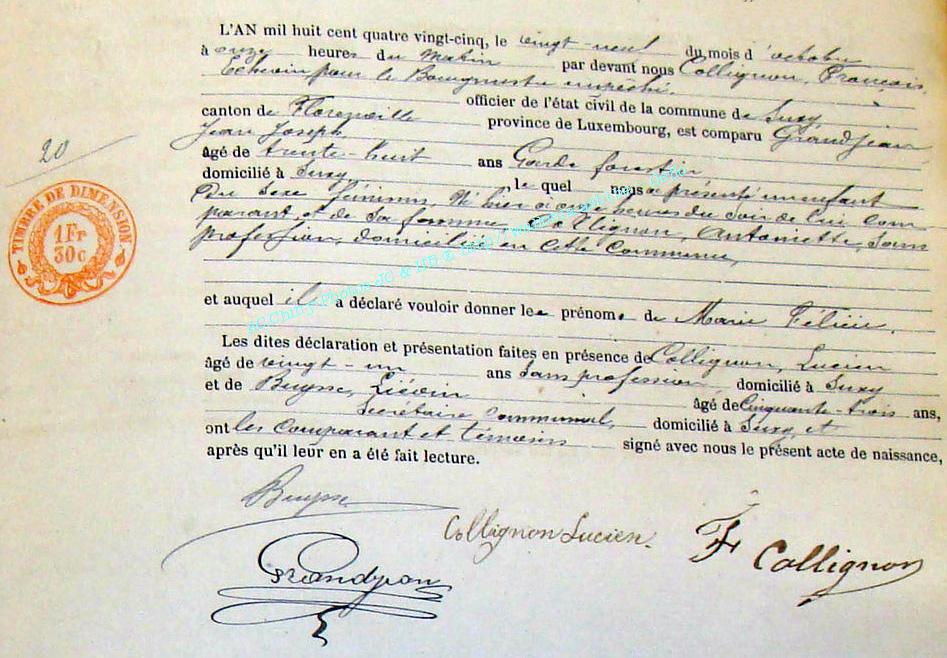 L'AN mil huit cent quatre vingt-cinq, le vingt-neuf du mois d'octobre
à onze heures du matin par devant nous Collignon, François,
Echevin pour le Bourgmestre empêché.
officier de l'état civil de la commune de Suxy
canton de Florenville province de Luxembourg, est comparu Grandjean
Jean Joseph
20
âgé de trente-huit ans Garde forestier
domicilié à Suxy, le quel nous a présenté un enfant
Du sexe féminin, Né hier à onze heures du soir de lui com
parant et de sa femme Collignon, Antoinette, sans
profession, domiciliée en cette Commune,
TIMBRE DE DIMENSION
1 Fr
30c
et auquel il a déclaré vouloir donner les prénoms de Marie Félicie.
Les dites déclaration et présentation faites en présence de Collignon, Lucien
âgé de vingt-un ans Sans profession, domicilié à Suxy
et de Buysse, Liévin âgé de Cinquante-trois ans,
Secrétaire Communal, domicilié à Suxy, et
ont les Comparant et témoins signé avec nous le présent acte de naissance,
après qu'il leur en a été fait lecture.
Buysse
Collignon Lucien.
F Collignon
Grandjean